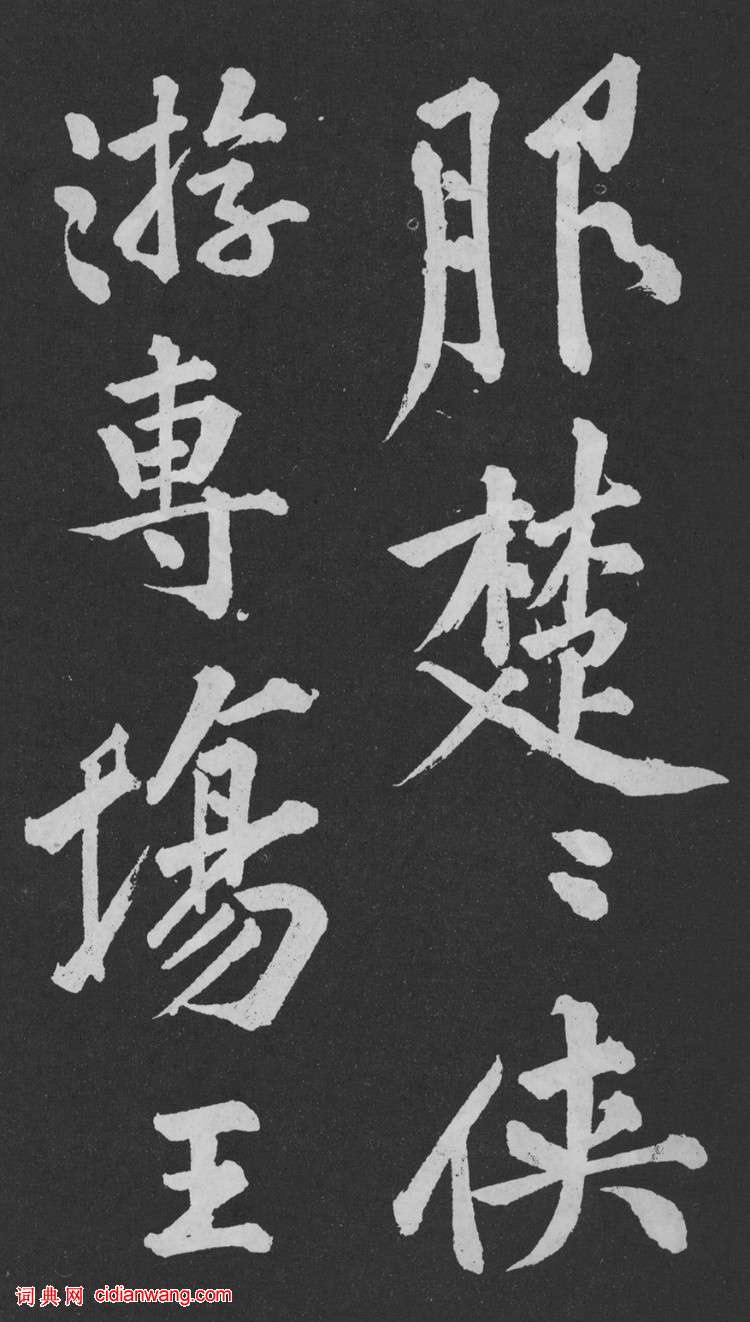 服楚〻侠
游専場王
词典网 cidianwang.com